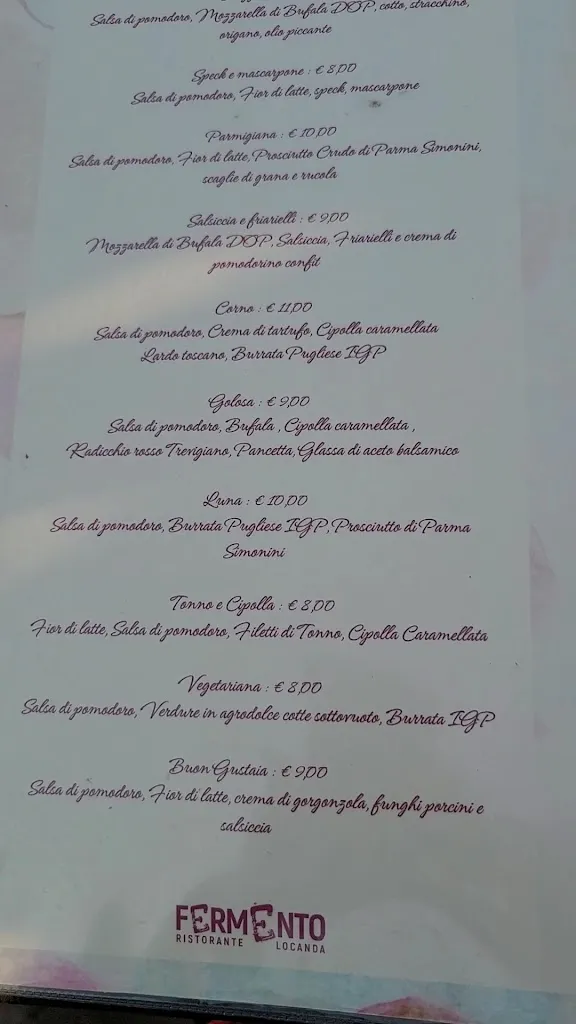 Salsa di pomodoro, Mozzarella di Bufala DOP, cotto, stracchino,
origano, olio piccante
Speck e mascarpone : € 8,00
Salsa di pomodoro, Fior di latte, speck, mascarpone
Parmigiana : € 10,00
Salsa di pomodoro, Fior di latte, Prosciutto Crudo di Parma Simonini,
scaglie di grana e rucola
Salsiccia e friarielli : € 9,00
Mozzarella di Bufala DOP, Salsiccia, Friarielli e crema di
pomodorino confit
Corno : € 11,00
Salsa di pomodoro, Crema di tartufo, Cipolla caramellata
Lardo toscano, Burrata Pugliese IGP
Golosa : € 9,00
Salsa di pomodoro, Bufala , Cipolla caramellata ,
Radicchio rosso Trevigiano, Pancetta, Glassa di aceto balsamico
Luna : € 10,00
Salsa di pomodoro, Burrata Pugliese IGP, Prosciutto di Parma
Simonini
Tonno e Cipolla : € 8,00
Fior di latte, Salsa di pomodoro, Filetti di Tonno, Cipolla Caramellata
Vegetariana : € 8,00
Salsa di pomodoro, Verdure in agrodolce cotte sottovuoto, Burrata IGP
Buon Gustaia : € 9,00
Salsa di pomodoro, Fior di latte, crema di gorgonzola, funghi porcini e
salsiccia
FERMENTO
RISTORANTE LOCANDA